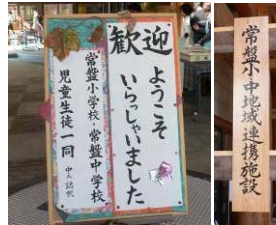 歓迎
ようこそ
いらっしゃいました
常盤小学校・常盤中学校
児童生徒一同
常盤小・中地域連携施設